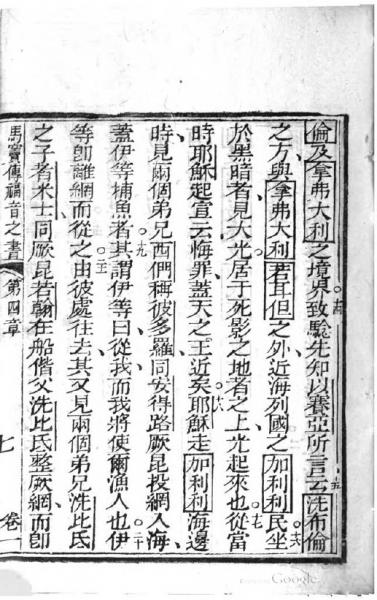 倫及拿弗大利之境界致驗先知以賽亞所言云洗布倫
之方與拿弗大利若耳但之外近海列國之加利利民坐
於黑暗者見大光居于死影之地者之上光起來也從當
時耶穌起宣云悔罪蓋天之王近矣耶穌走加利利海邊
時見兩個弟兄西們稱彼多羅同安得路厥昆投網入海
蓋伊等捕魚者其謂伊等曰從我而我將使爾漁人也伊
等卽離網而從之由彼處往去其又見兩個弟兄洗比氐
之子者米士同厥昆若翰在船偕父洗比氐整厥網而卽
馬竇傳福音之書 第四章 七 卷一
Google